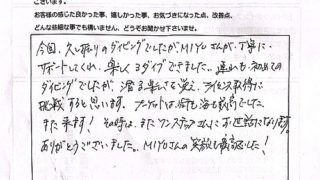 ございます。
お客様の感じた良かった事、嬉しかった事、お気づきになった点、改善点、
どんな些細な事でも構いません、どうぞお聞かせ下さいませ。
今回、久し振りのダイビングでしたが、MIYUさんが、丁寧に
サポートしてくれ、楽しく3ダイブできました。連れも初めての
ダイビングでしたが、潜る楽しさを覚え、ライセンス取得に
挑戦すると思います。プーケットは街も海も最高でした。
また来ます！その時は、またワンステップさんにお世話になります。
ありがとうございました。MIYUさんの笑顔も最高でした！